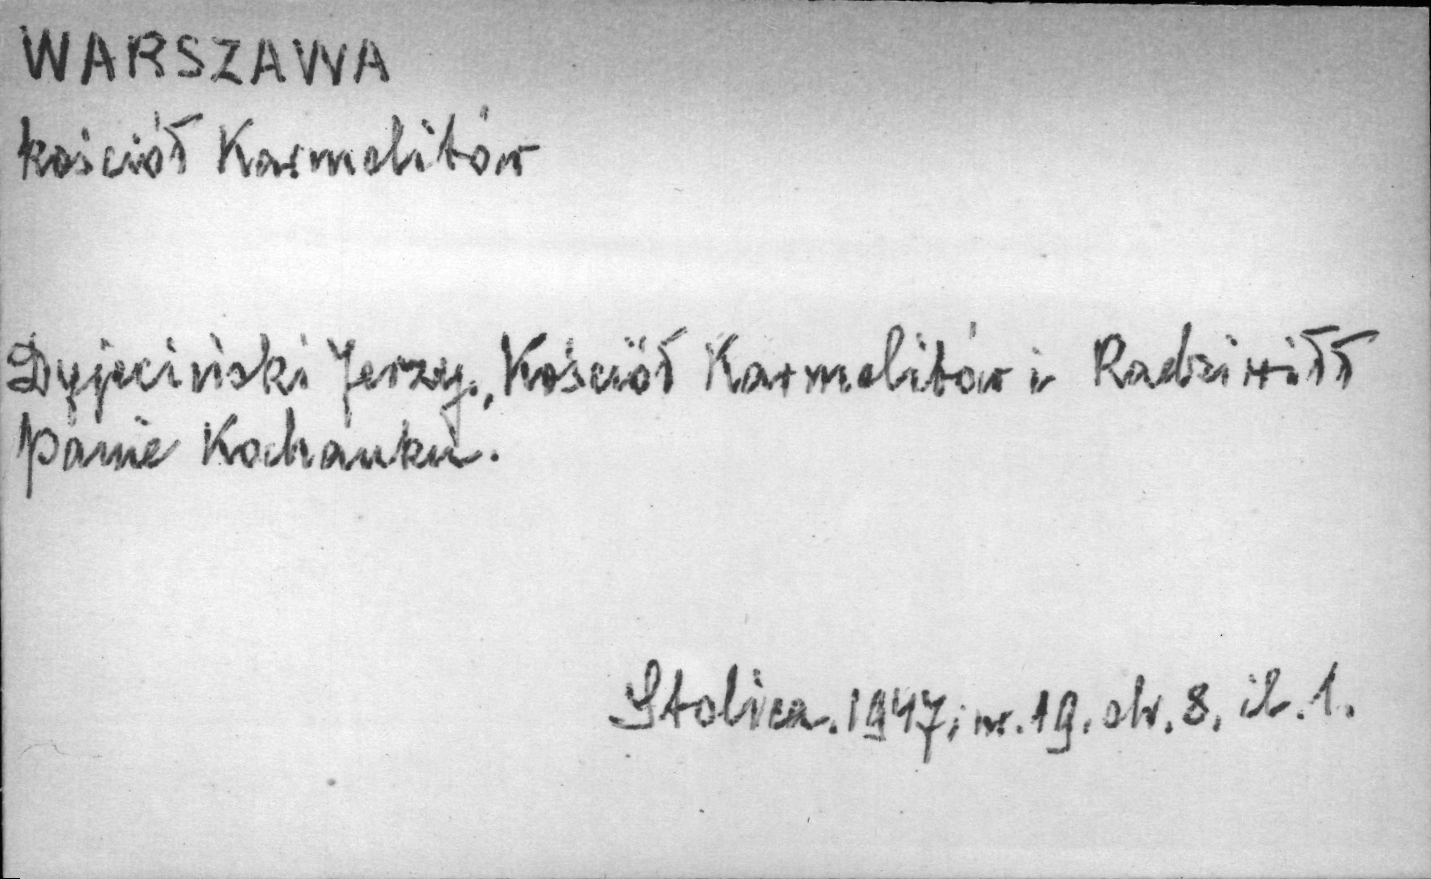 WARSZAWA
kościół Karmelitów
Dyjeciński Jerzy., Kościół Karmelitów i Radziwiłł
Panie Kochanku.
Stolica. 1947, nr. 19. str. 8, il. 1.